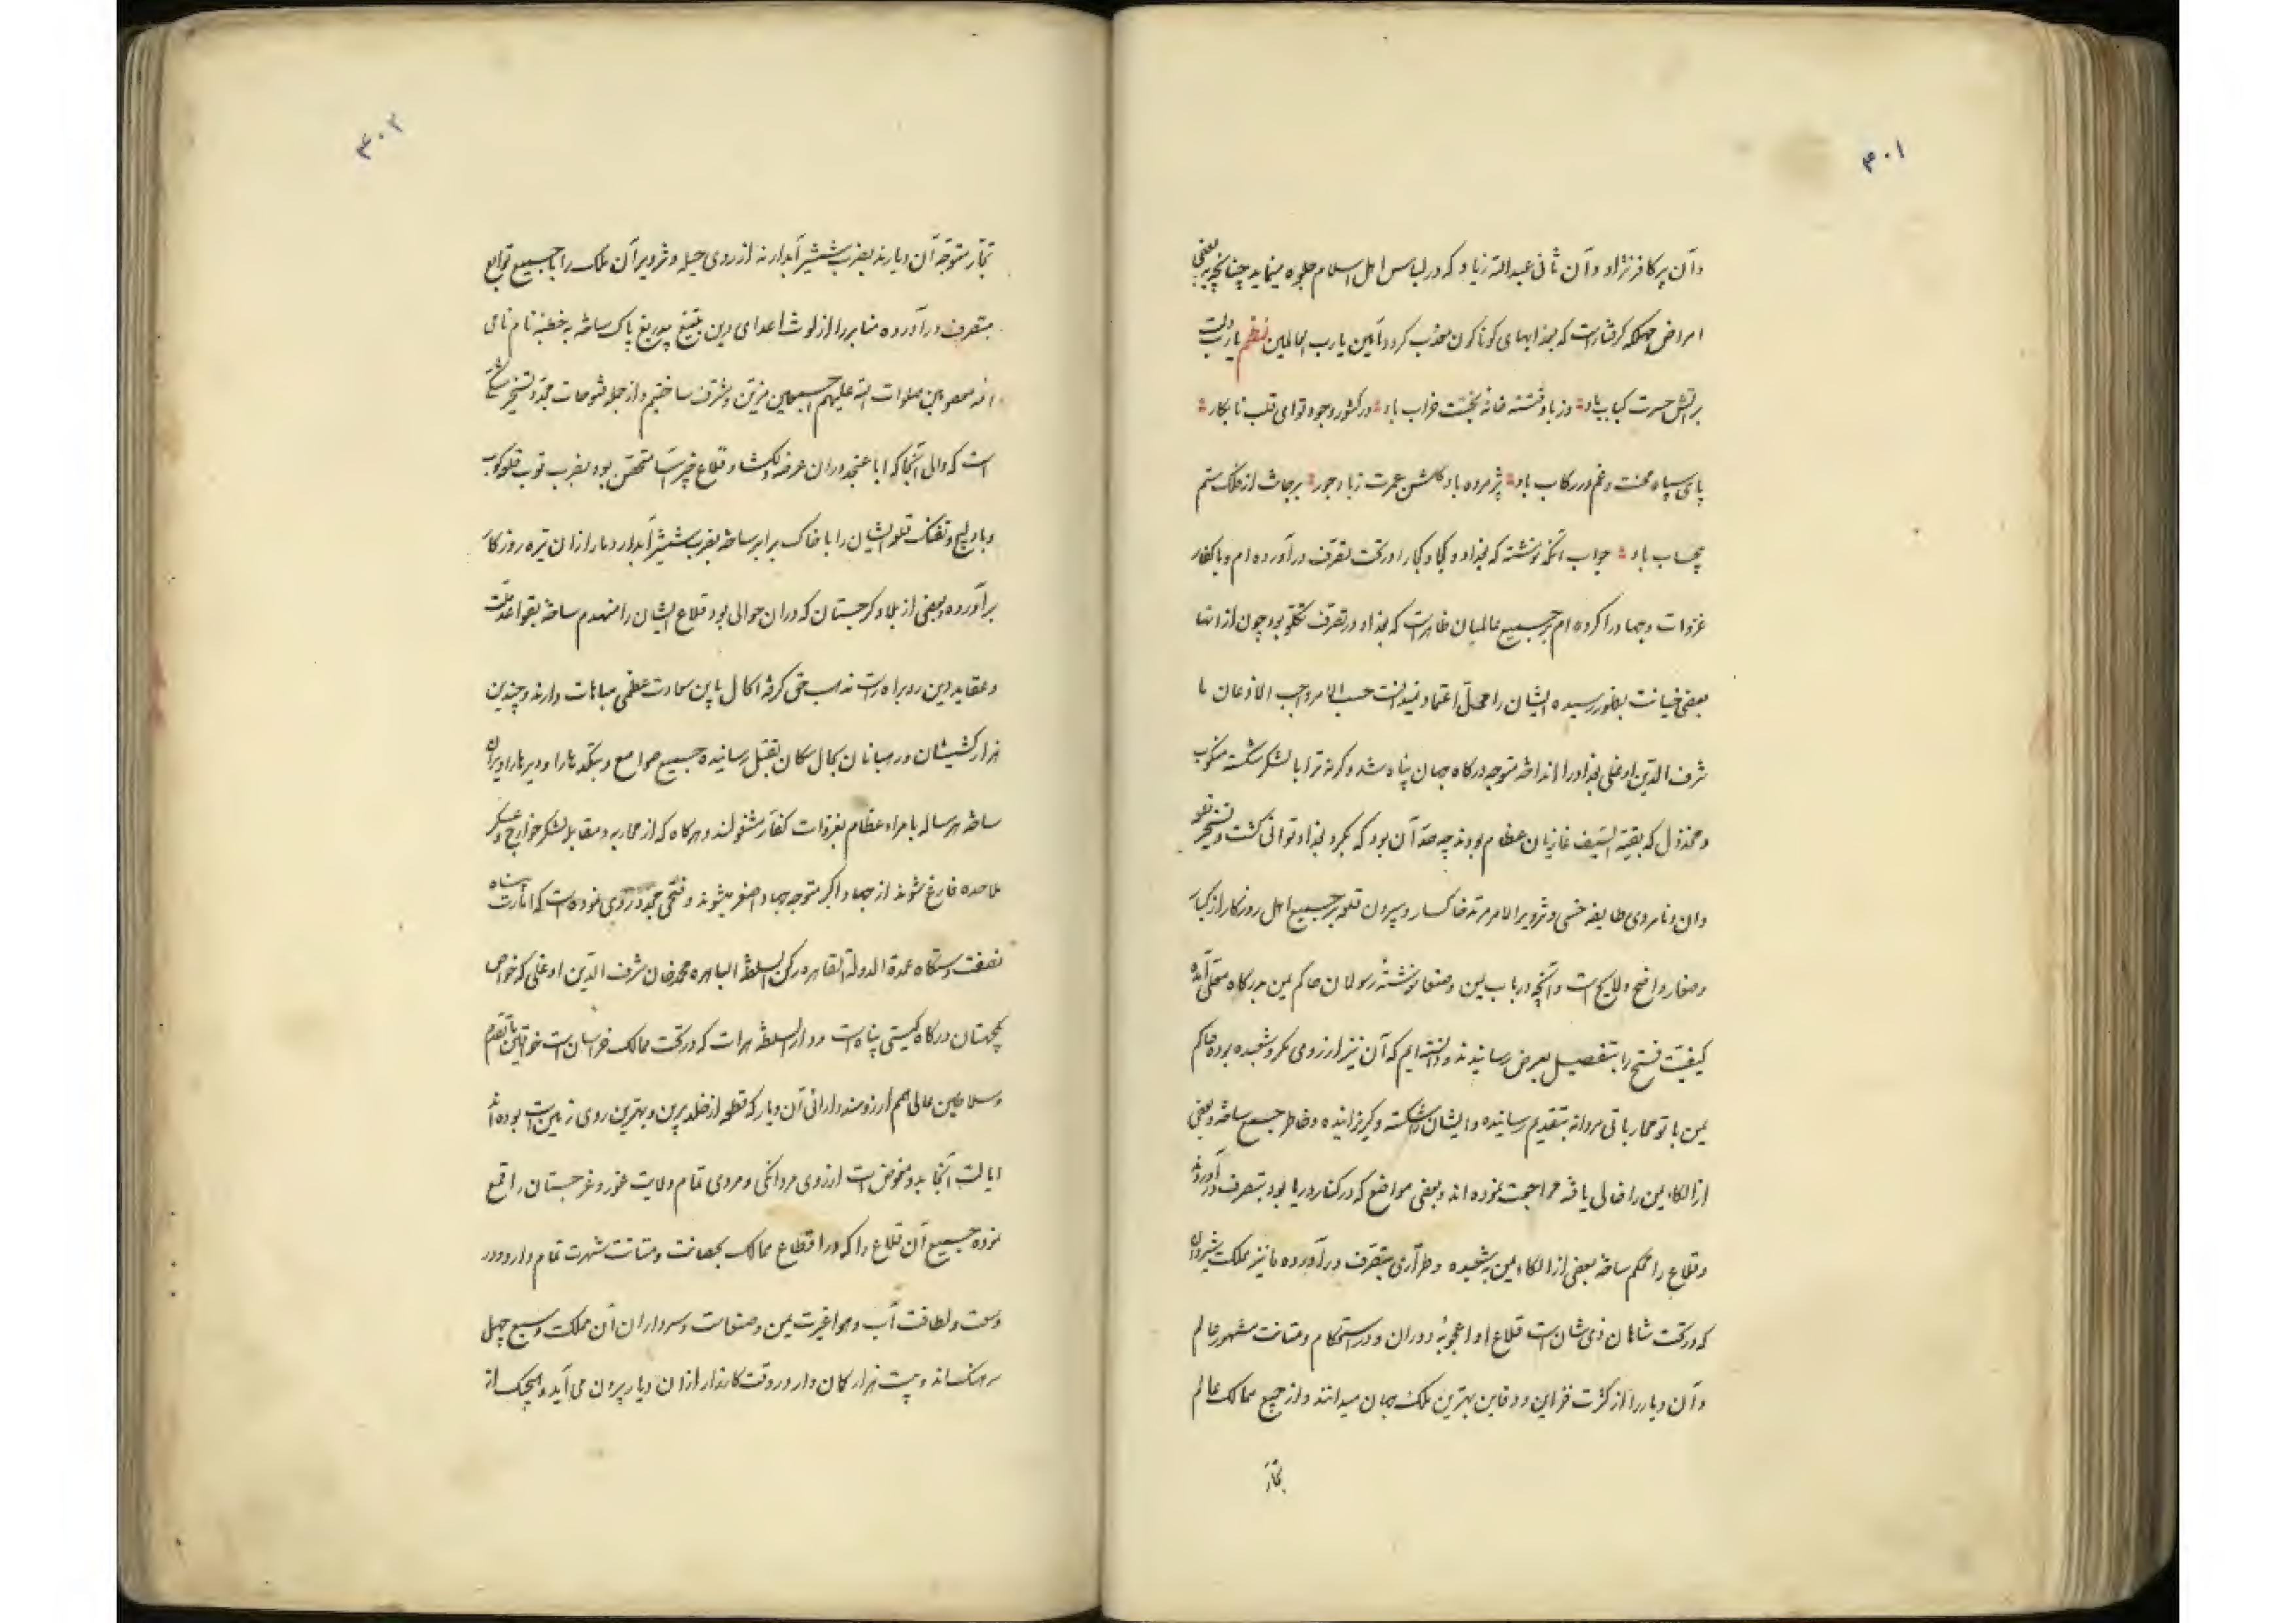 ۳۰۱
وآن پر کافر نژاد وآن ثانی عبدالله زیاد که در لباس اهل اسلام جلوه مینماید چنانچه ببعضی
امراض مهلکه گرفتارست که بعذابهای گوناگون معذب گردد آمین یا رب العالمین نظم یا رب دلت
بر آتش حسرت کباب باد وز باد فتنه خانهٔ بختت خراب باد در کشور وجود تو ای قلب نابکار
پای سپاه محنت و غم در رکاب باد پژمرده باد گلشن عمرت ز باد جور بر جانت از فلک ستم
بیحساب باد جواب آنکه نوشته که بغداد و را در تحت تصرف درآورده ام و با کفار
غزوات و جهاد را کرده ام بر جمیع عالمیان ظاهرست که بغداد در تصرف تکلو بود چون از آنها
بعضی خیانت بظهور رسیده ایشان را محل اعتماد نمیدانست حسب الامر واجب الاذعان ما
شرف الدین اوغلی بغداد را انداخته متوجه درگاه جهان پناه شد وگرنه ترا با لشکر شکسته منکوب
و مخذول که بقیة السیف غازیان عظام بودند چه حد آن بود که بگرد بغداد توانی گشت و تسخیر
دان و نامردی طایفه و تزویر الامر مرتد خاکسار و بیرون قلعه بر جمیع اهل روزگار از کبار
و صغار واضح و لایح است و آنچه در باب یمن و صنعا نوشته رسولان حاکم یمن بدرگاه معلی آمده
کیفیت فتح را بتفصیل بعرض رسانیدند و دانسته ایم که آن نیز از روی مکر و شعبده بوده حاکم
یمن با تو محارباتی مردانه بتقدیم رسانیده و ایشان را شکسته و گریزانیده و خاطر جمع ساخته و بعضی
از الکاء یمن را خالی یافته مراجعت نموده اند و بعضی مواضع که در کنار دریا بود بتصرف درآورده
و قلاع را محکم ساخته بعضی از الکاء یمن بشعبده و طراری بتصرف درآورده ما نیز مملکت شیروان
که در تحت شاهان ذی شان است قلاع او اعجوبهٔ دوران و در استحکام و متانت مشهور عالم
وآن دیار را از کثرت خزاین و دفاین بهترین ملک جهان میدانند و از جمیع ممالک عالم
تجار
۳۰۲
تجار متوجه آن دیارند بضرب شمشیر آبدار نه از روی حیله و تزویر آن ملک را با جمیع توابع
بتصرف درآورده منابر را از لوث اعدای دین بتیغ بیدریغ پاک ساخته به خطبهٔ نام نامی
ائمه معصومین صلوات الله علیهم اجمعین مزین و مشرف ساختیم و از جمله فتوحات مجدد تسخیر
است که والی آنجا که اباعنجد در آن عرصه دلگشا و قلاع متحصن بود بضرب توب قلعه کوب
و بادلیج و تفنگ قلعه ایشان را با خاک برابر ساخته بضرب شمشیر آبدار دمار از آن تیره روزگار
برآورده و بعضی از بلاد گرجستان که در آن حوالی بود قلاع ایشان را منهدم ساخته بقواعد ملت
و عقاید دین رو براه راست مذهب حق گرفته الحال باین سعادت عظمی مباهات دارند و چندین
هزار کشیشان و رهبانان بقتل رسانیده جمیع صوامع و بتکدها را و دیرها را ویران
ساخته هرساله با امراء عظام بغزوات کفار مشغولند و هرگاه که از محاربه و مقابله لشکر خوارج و عسکر
ملاحده فارغ شوند از جهاد اکبر متوجه جهاد اصغر میشوند و فتحی مجدد روی نموده است که امارت پناه
نصفت دستگاه عمدة الدولة القاهره رکن السلطنه الباهره محمدخان شرف الدین اوغلی که خواص
یکجهتان درگاه گیتی پناه است و دار السلطنه هرات که در تحت ممالک خراسان است خواقین ما تقدم
و سلاطین عالی همم آرزومند دارائی آن دیار که قطعه از خلد برین و بهترین روی زمین است بوده اند
ایالت آنجا بدو مفوض است از روی مردانگی و مردی تمام ولایت غور و غرجستان را فتح
نموده جمیع آن قلاع را که در اقطاع ممالک بحصانت و متانت شهرت تمام دارد و در
وسعت و لطافت آب و هوا غیرت یمن و صنعاست و سرداران آن مملکت وسیع چهل
سرهنگ اند و بیست هزار کمان دار در وقت کارزار از آن دیار بیرون می آید و هیچیک از